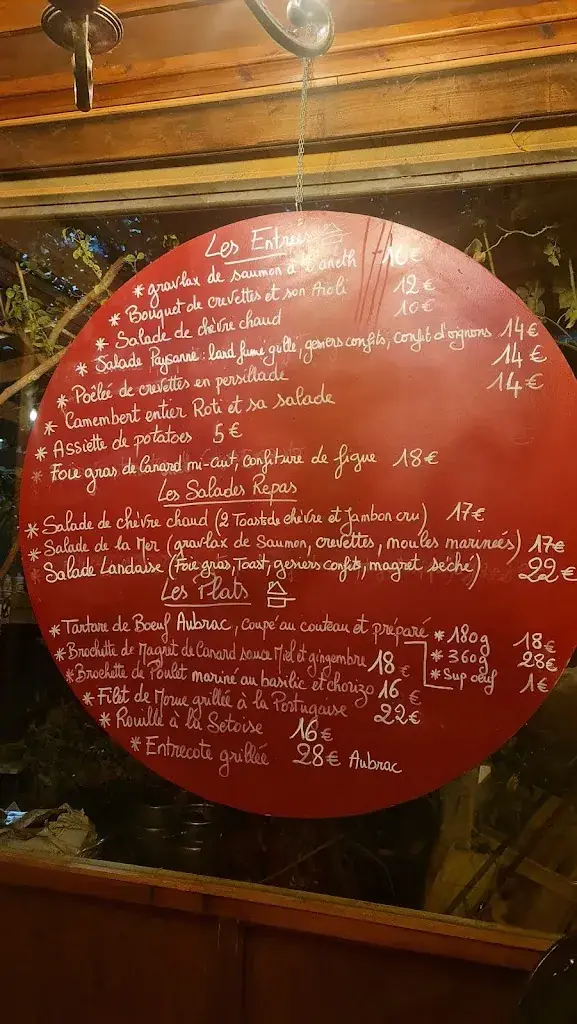 Les Entrées
* gravlax de saumon à l'aneth 16€
* Bouquet de crevettes et son Aïoli 12€
* Salade de chèvre chaud 10€
* Salade Paysanne : lard fumé grillé, gesiers confits, confit d'oignons 14€
* Poêlée de crevettes en persillade 14€
* Camembert entier Roti et sa salade 14€
* Assiette de potatoes 5€
* Foie gras de Canard mi-cuit, confiture de figue 18€
Les Salades Repas
* Salade de chèvre chaud (2 Toast de chèvre et Jambon cru) 17€
* Salade de la Mer (gravlax de Saumon, crevettes, moules marinées) 17€
* Salade Landaise (Foie gras, Toast, gesiers confits, magret séché) 22€
Les Plats
* Tartare de Boeuf Aubrac, coupé au couteau et préparé * 180g 18€
* 360g 28€
* Sup oeuf 1€
* Brochette de Magret de Canard sauce Miel et gingembre 18€
* Brochette de Poulet mariné au basilic et chorizo 16€
* Filet de Morue grillée à la Portugaise 22€
* Rouille à la Setoise 16€
* Entrecote grillée 28€ Aubrac